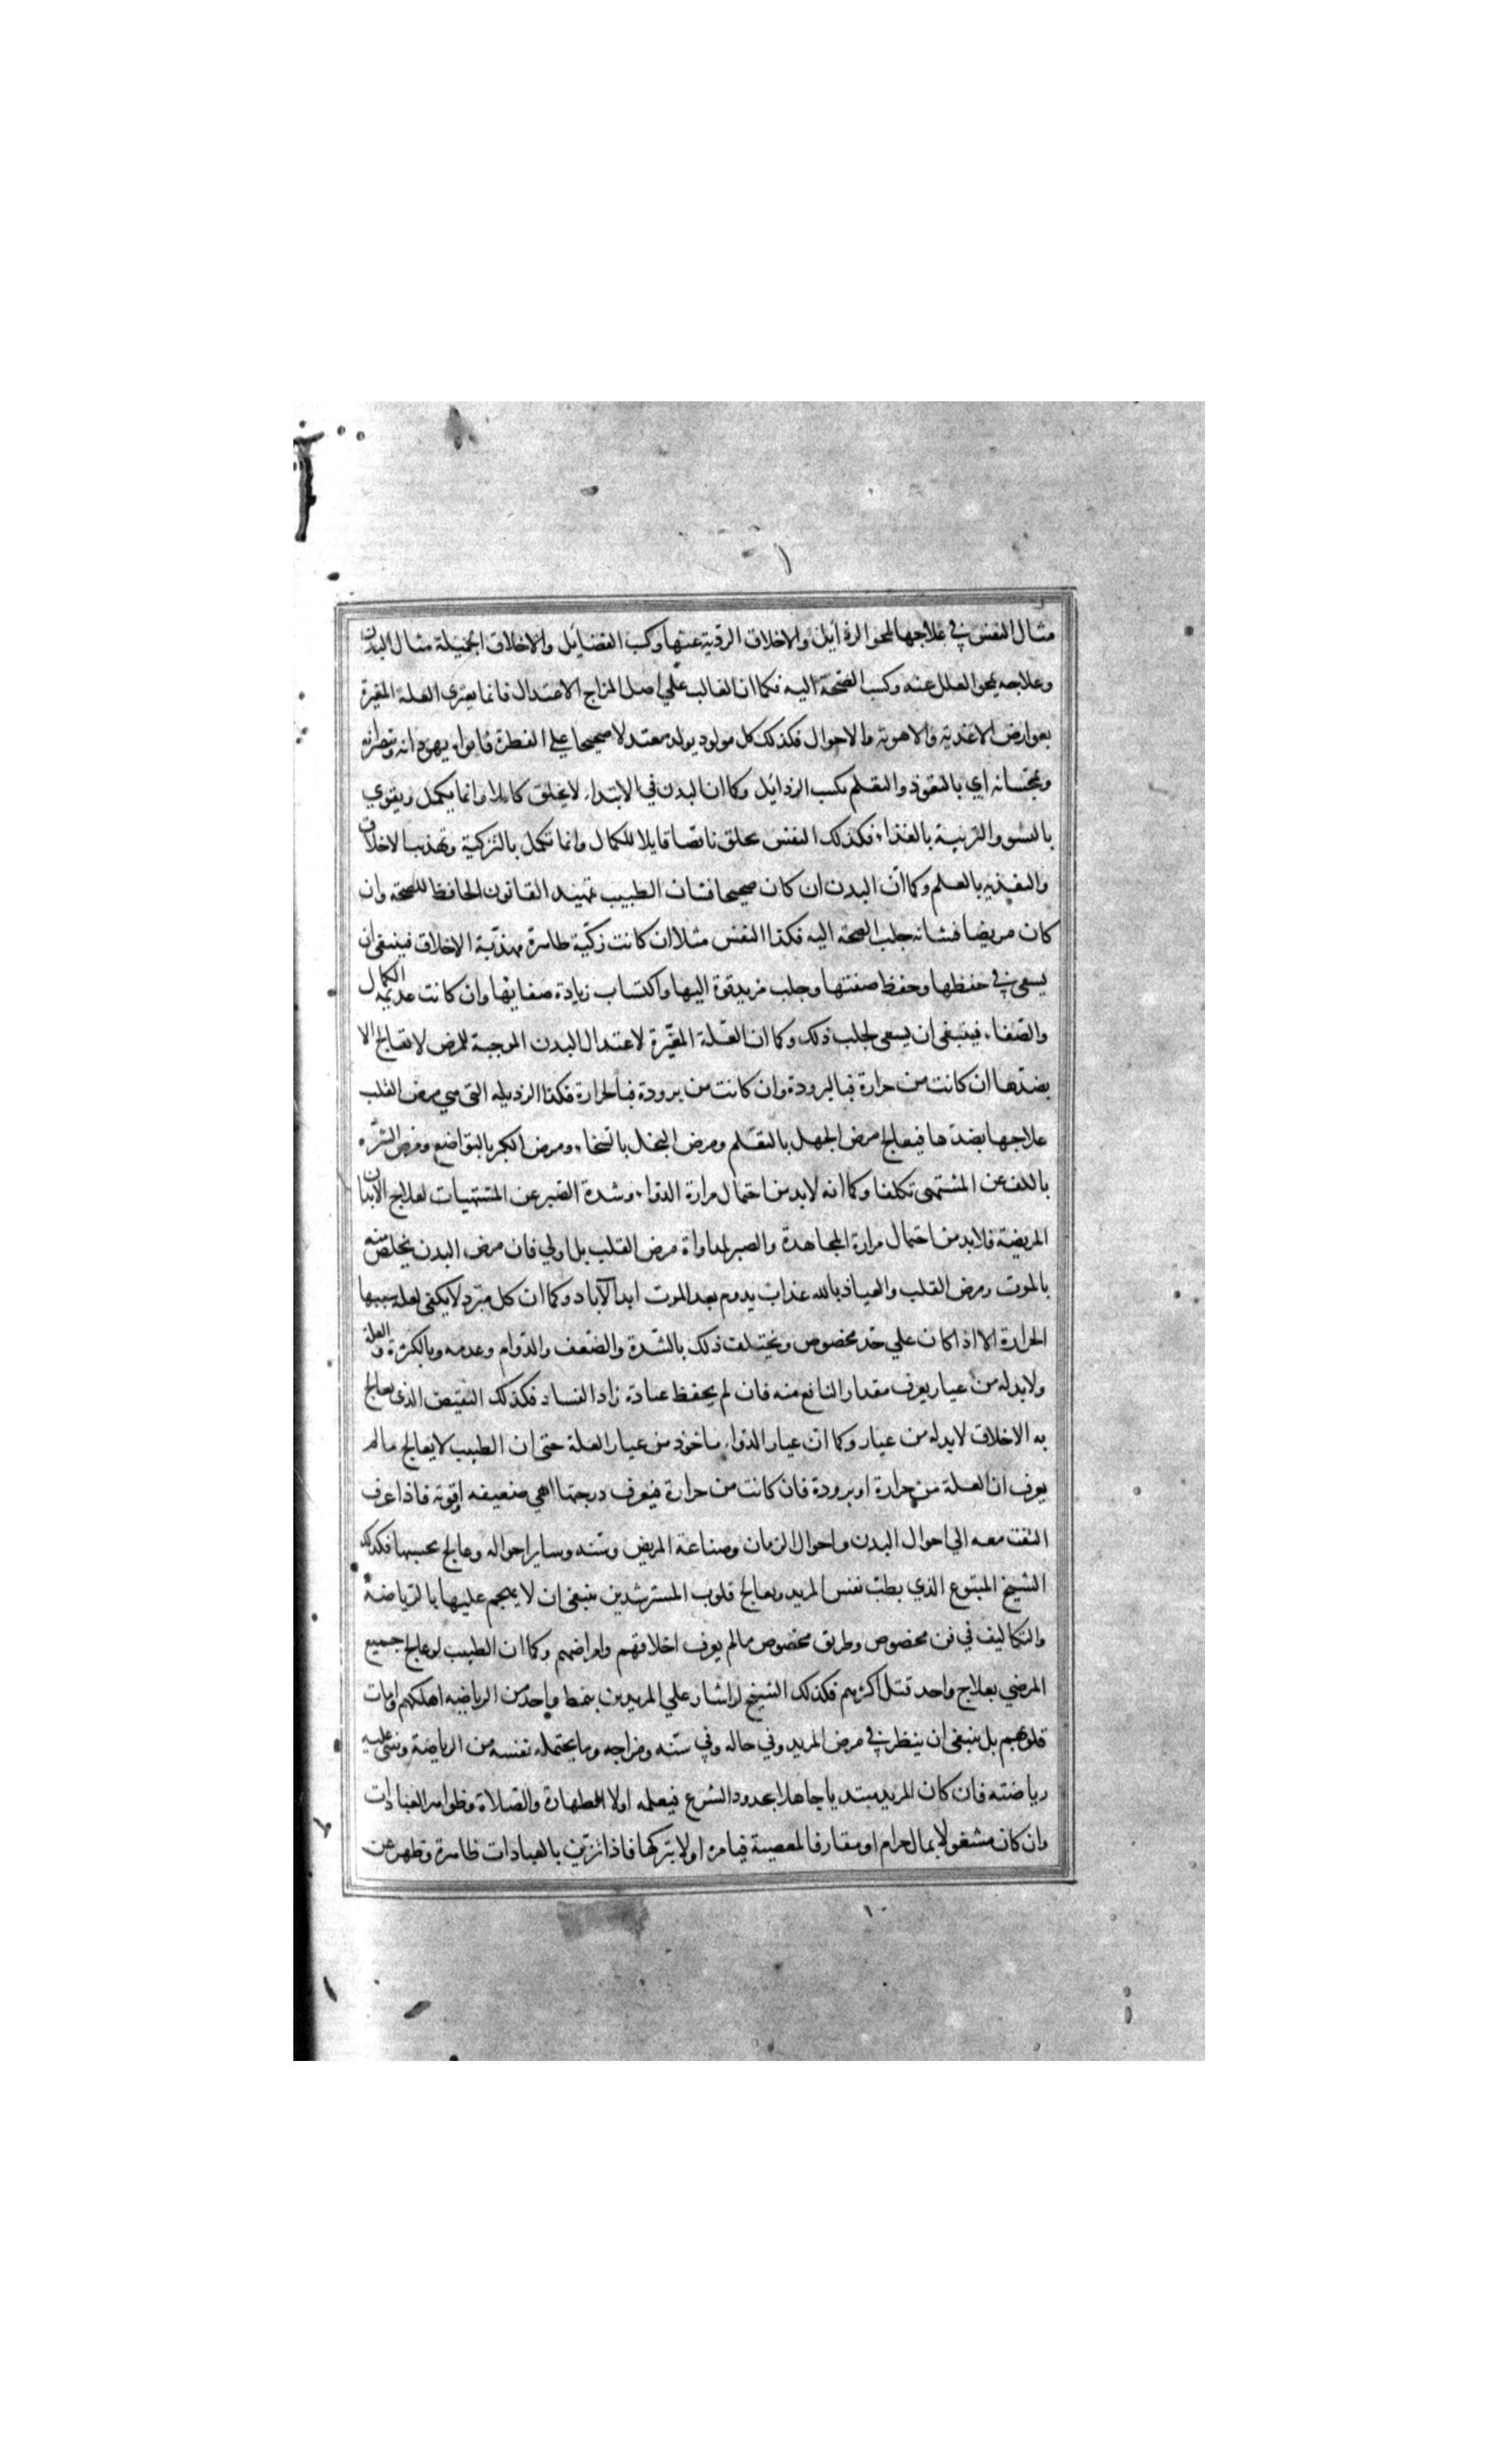 مثال النفس في علاجها لمحو الرذايل والاخلاق الردية عنها وكسب الفضايل والاخلاق الجميلة مثال البدن
وعلاجه بمحو العلل عنه وكسب الصحة اليه فكما ان الغالب علي اصل المزاج الاعتدال فانما يعترى العلة المغيرة
بعوارض الاغذية والاهوية والاحوال فكذلك كل مولود يولد معتدلا صحيحا على الفطرة فابواه يهودانه وينصرانه
ويمجسانه اي بالتعود والتعلم يكسب الرذائل وكما ان البدن في الابتداء لا يخلق كاملا وانما يكمل ويقوي
بالنشو والتربية بالغذاء فكذلك النفس تخلق ناقصا قابلا للكمال وانما تكمل بالتزكية وتهذيب الاخلاق
والتغذية بالعلم وكما ان البدن ان كان صحيحا فشان الطبيب تمهيد القانون الحافظ للصحة وان
كان مريضا فشانه جلب الصحة اليه فكذا النفس مثلا ان كانت زكية طاهرة مهذبة الاخلاق فينبغى ان
يسعى في حفظها وحفظ صفتها وجلب مزيد قوة اليها واكتساب زيادة صفايها وان كانت عديمه الكمال
والصفاء فينبغى ان يسعى لجلب ذلك وكما ان العلة المغيرة لاعتدال البدن الموجبة للمرض لا تعالج الا
بضدها ان كانت من حرارة فبالبرودة وان كانت من برودة فبالحرارة فكذا الرذيله التى هي مرض القلب
علاجها بضدها فيعالج مرض الجهل بالتعلم ومرض البخل بالسخاء ومرض الكبر بالتواضع ومرض الشره
بالكف عن المشتهى تكلفا وكما انه لابد من احتمال مرارة الدواء وشدة الصبر عن المشتهيات لعلاج الابدان
المريضة فلابد من احتمال مرارة المجاهدة والصبر لمداواة مرض القلب بل اولي فان مرض البدن يخلص منه
بالموت ومرض القلب والعياذ بالله عذاب يدوم بعد الموت ابد الآباد وكما ان كل مبرد لا يكفى لعلة سببها
الحرارة الا اذا كان علي حد مخصوص ويختلف ذلك بالشدة والضعف والدوام وعدمه وبالكثرة والقلة
ولابد له من عيار يعرف مقدار النافع منه فان لم يحفظ عياره زاد الفساد فكذلك النقيض الذى يعالج
به الاخلاق لابد له من عيار وكما ان عيار الدواء ماخوذ من عيار العلة حتى ان الطبيب لا يعالج ما لم
يعرف ان العلة من حرارة او برودة فان كانت من حرارة فيعرف درجتها اهي ضعيفه ام قوية فاذا عرف
التفت معه الي احوال البدن واحوال الزمان وصناعة المريض وسنه وساير احواله وعالج بحسبها فكذلك
الشيخ المتبوع الذي يطب نفس المريد ويعالج قلوب المسترشدين ينبغى ان لا يهجم عليها بالرياضة
والتكاليف في فن مخصوص وطريق مخصوص ما لم يعرف اخلاقهم وامراضهم وكما ان الطبيب لو عالج جميع
المرضي بعلاج واحد قتل اكثرهم فكذلك الشيخ لو اشار علي المريدين بنمط واحد من الرياضة اهلكهم وامات
قلوبهم بل ينبغى ان ينظر في مرض المريد وفي حاله وفي سنه ومزاجه وما يحتمله نفسه من الرياضة ويبنى عليه
رياضته فان كان المريد مبتديا جاهلا بحدود الشرع فيعلمه اولا الطهارة والصلاة وظواهر العبادات
وان كان مشغولا بمال حرام او مقارفا لمعصية فيامره اولا بتركها فاذا تزين بالعبادات ظاهره وطهر عن